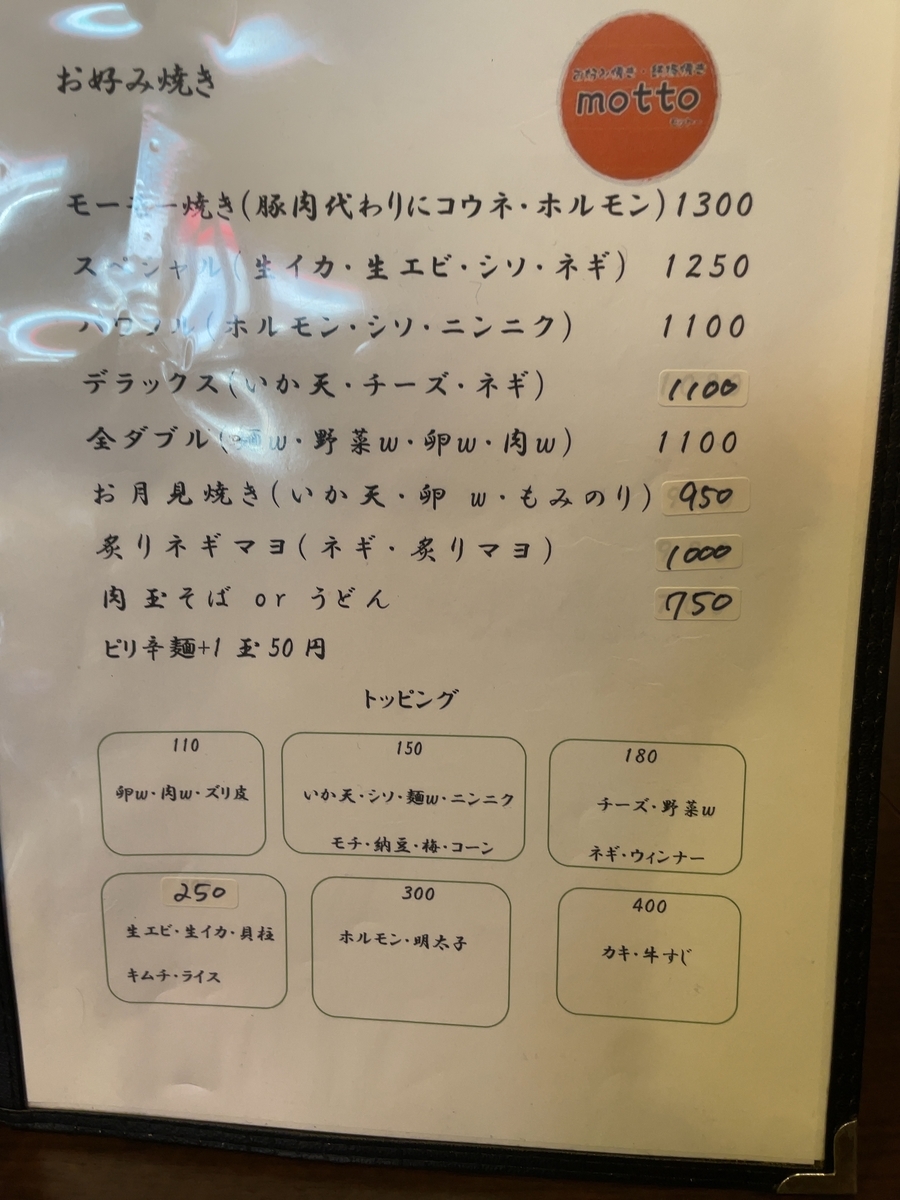 お好み焼き
お好み焼き・鉄板焼き
motto
モーモー焼き(豚肉代わりにコウネ・ホルモン) 1300
スペシャル(生イカ・生エビ・シソ・ネギ) 1250
パワフル(ホルモン・シソ・ニンニク) 1100
デラックス(いか天・チーズ・ネギ) 1100
全ダブル(麺w・野菜w・卵w・肉w) 1100
お月見焼き(いか天・卵 w・もみのり) 950
炙りネギマヨ(ネギ・炙りマヨ) 1000
肉玉そば or うどん 750
ピリ辛麺+1 玉50円
トッピング
110
卵w・肉w・ズリ皮
150
いか天・シソ・麺w・ニンニク
モチ・納豆・梅・コーン
180
チーズ・野菜w
ネギ・ウィンナー
250
生エビ・生イカ・貝柱
キムチ・ライス
300
ホルモン・明太子
400
カキ・牛すじ